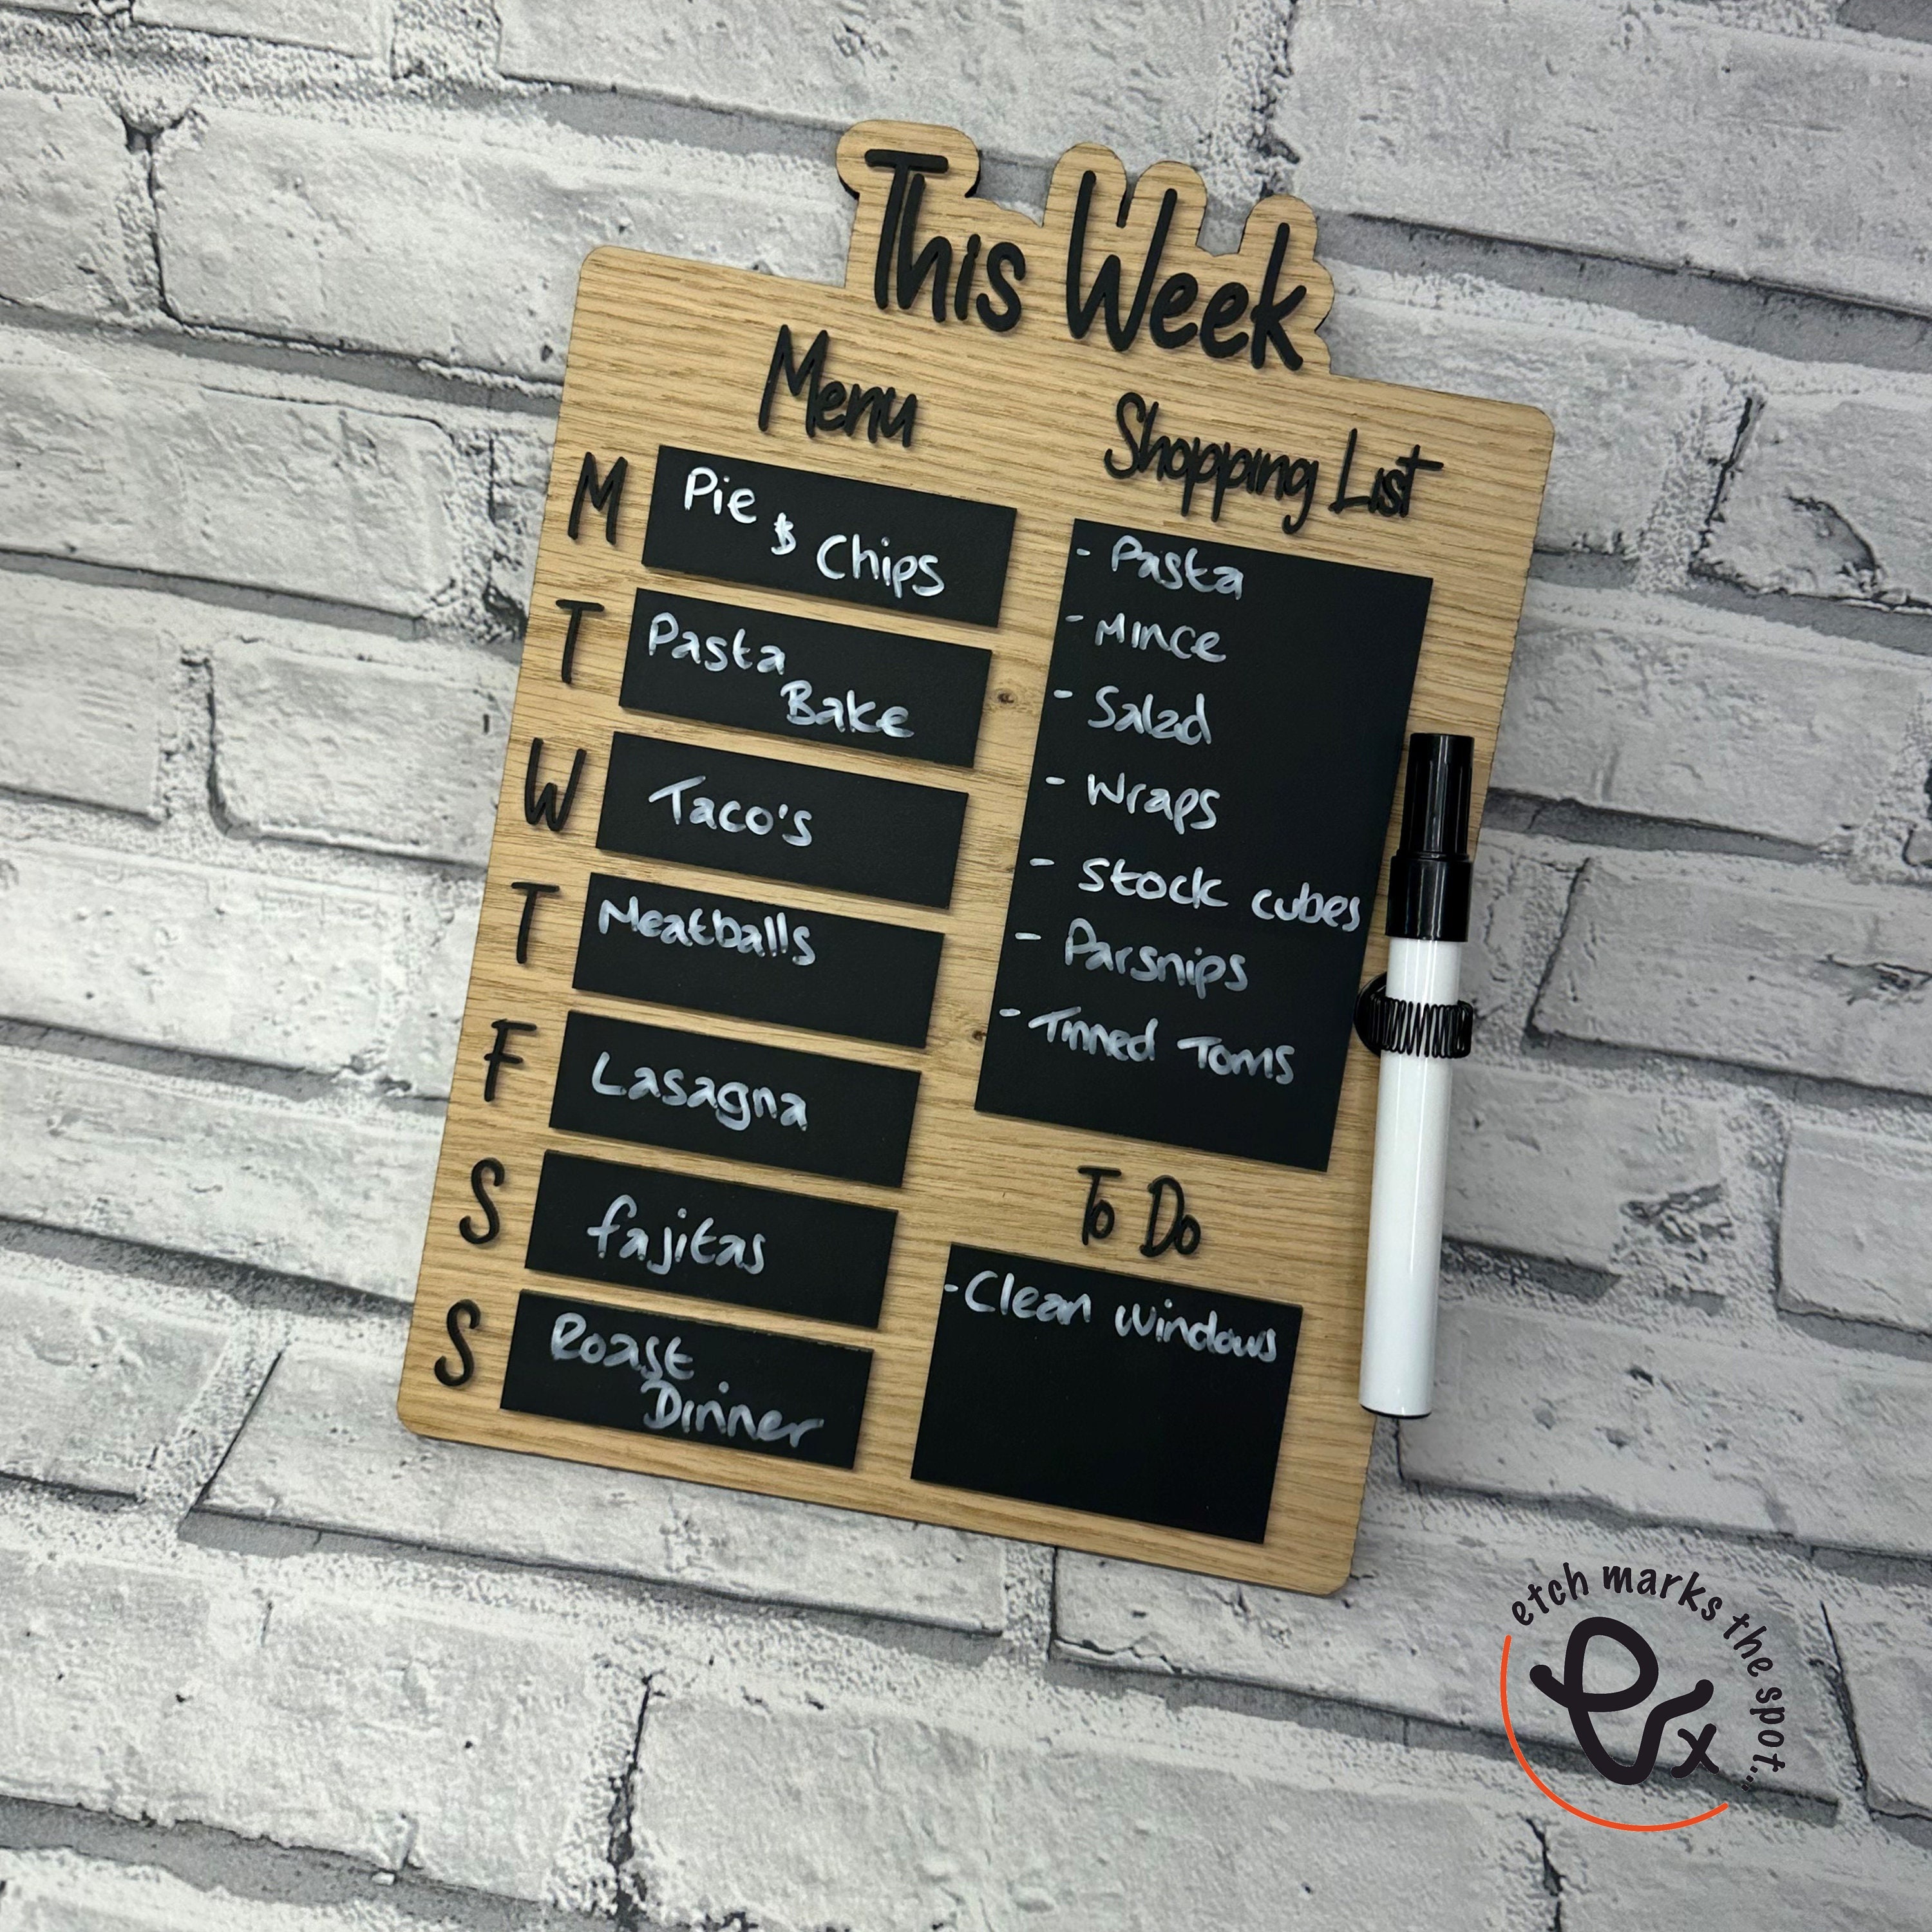 This Week
Menu
M
Pie & Chips
T
Pasta
Bake
W
Taco's
T
Meatballs
F
Lasagna
S
fajitas
S
Roast
Dinner
Shopping List
- Pasta
- Mince
- Salad
- Wraps
- Stock cubes
- Parsnips
- Tinned Toms
To Do
- Clean windows
etch marks the spot...
ex